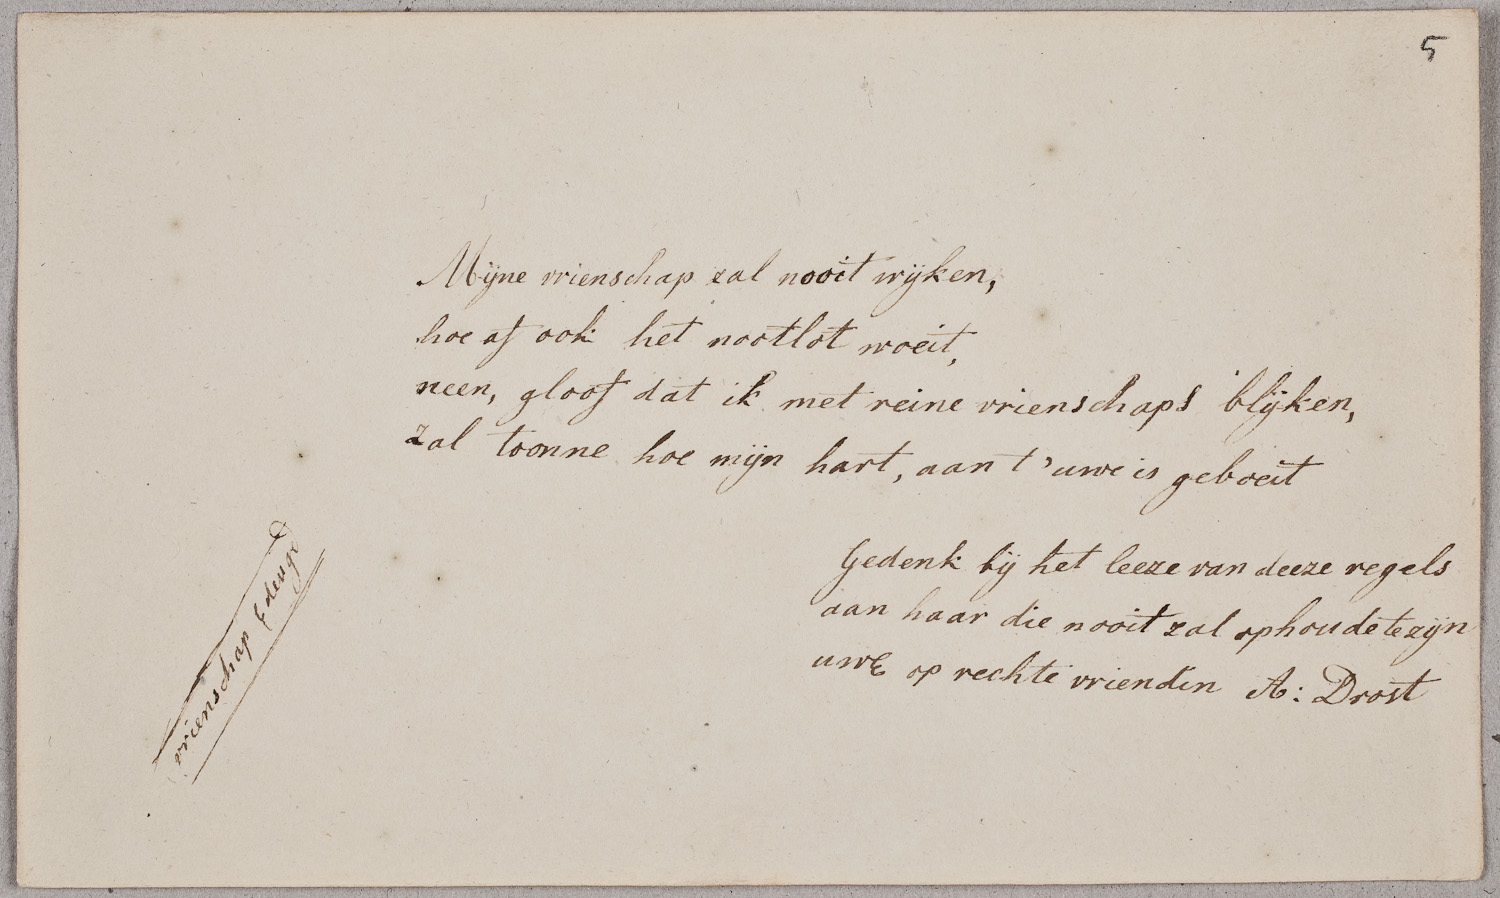 5
Mijne vrienschap zal nooit wijken,
hoe of ook het nootlot woeit,
neen, gloof dat ik met reine vrienschaps blijken,
zal toonne hoe mijn hart, aan t'uwe is geboeit
Gedenk bij het leeze van deeze regels
aan haar die nooit zal ophoude te zijn
uwE op rechte vriendin A: Drost
vrienschap & deugd